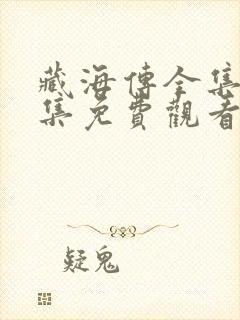 藏海傳全集
集免費觀看
疑鬼